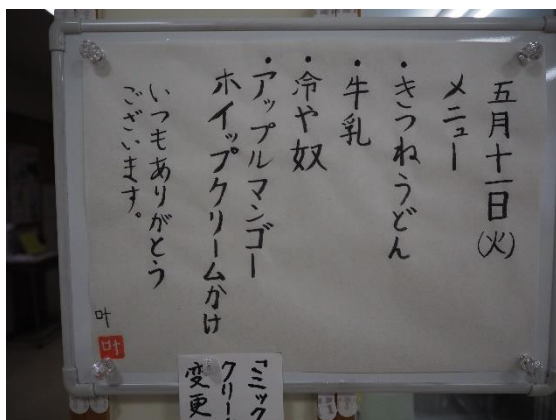 五月十一日(火)
メニュー
・きつねうどん
・牛乳
・冷や奴
・アップルマンゴー
ホイップクリームかけ
いつもありがとう
ございます。
叶
叶
「ミック
クリー
変更